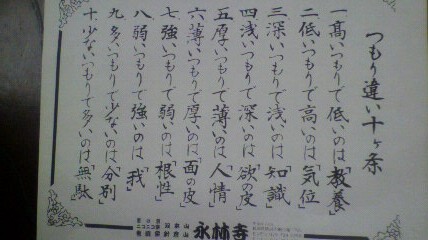 つもり違い十ヶ条
一 高いつもりで低いのは「教養」
二 低いつもりで高いのは「気位」
三 深いつもりで浅いのは「知識」
四 浅いつもりで深いのは「欲の皮」
五 厚いつもりで薄いのは「人情」
六 薄いつもりで厚いのは「面の皮」
七 強いつもりで弱いのは「根性」
八 弱いつもりで強いのは「我」
九 多いつもりで少ないのは「分別」
十 少ないつもりで多いのは「無駄」
永林寺